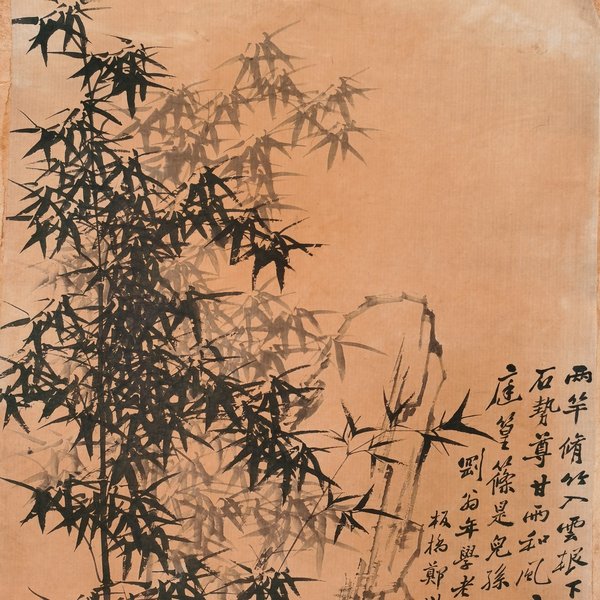 兩竿脩竹入雲根下
石勢尊甘雨和風
庭篁篠是兒孫
劉翁年學老
板橋鄭